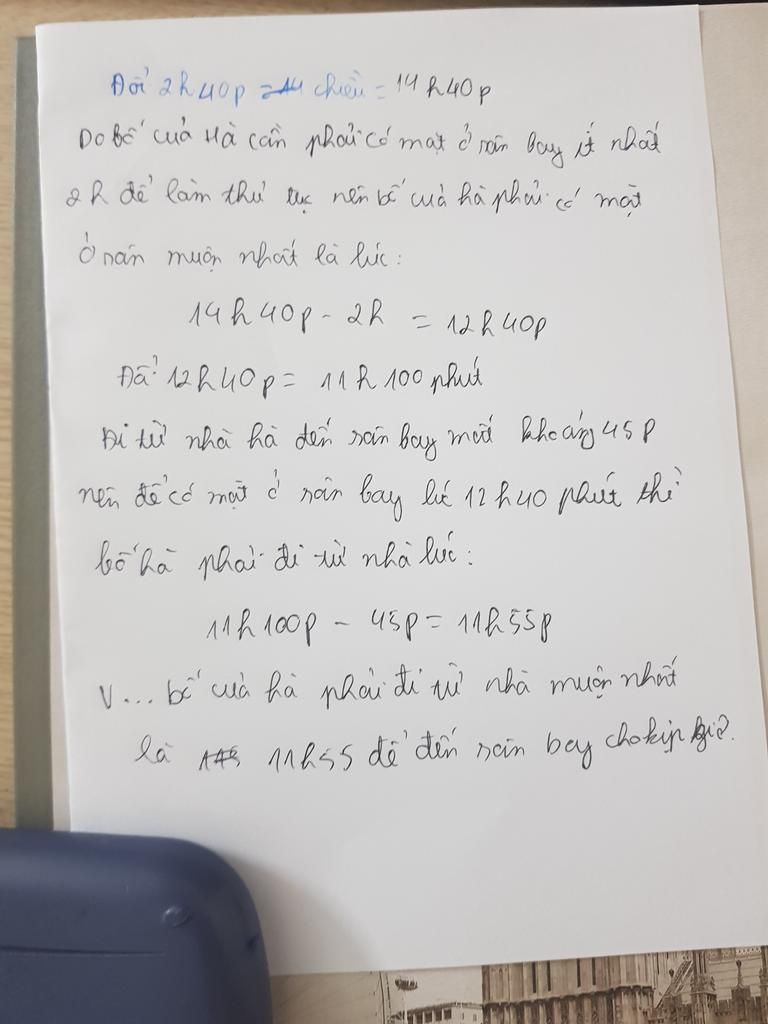 Đổi 2h40p = 14 chiều = 14h40p
Do bố của Hà cần phải có mặt ở sân bay ít nhất
2h để làm thủ tục nên bố của hà phải có mặt
ở sân muộn nhất là lúc:
14h40p - 2h = 12h40p
Đổi 12h40p = 11h100 phút
Đi từ nhà hà đến sân bay mất khoảng 45p
nên để có mặt ở sân bay lúc 12h40 phút thì
bố hà phải đi từ nhà lúc:
11h100p - 45p = 11h55p
V... bố của hà phải đi từ nhà muộn nhất
là 11h55 để đến sân bay cho kịp giờ.